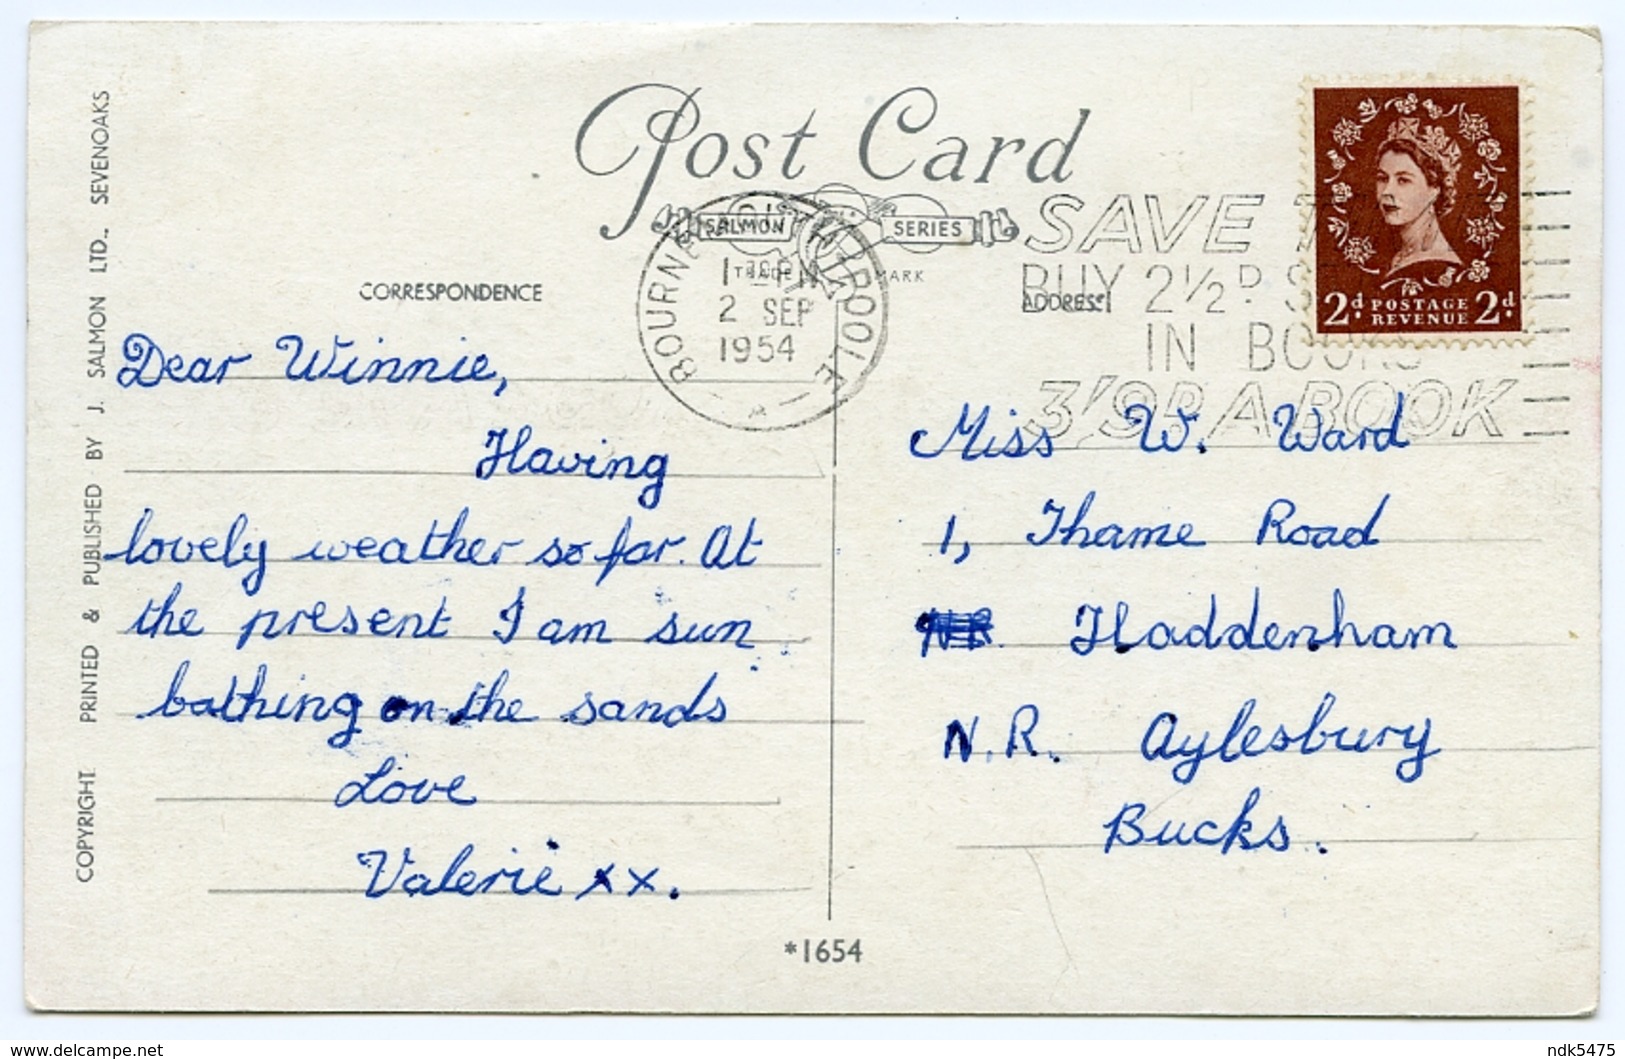 Post Card
SALMON SERIES
TRADE MARK
CORRESPONDENCE
ADDRESS
COPYRIGHT. PRINTED & PUBLISHED BY J. SALMON LTD., SEVENOAKS
POOLE
2 SEP
1954
SAVE
BUY 2½D.
IN BOOKS
3/9D. A BOOK
2d. POSTAGE REVENUE 2d.
Dear Winnie,
Having
lovely weather so far. At
the present I am sun
bathing on the sands
Love
Valerie xx.
Miss W. Ward
1, Thame Road
Haddenham
N.R. Aylesbury
Bucks.
*1654
www.delcampe.net
ndk5475